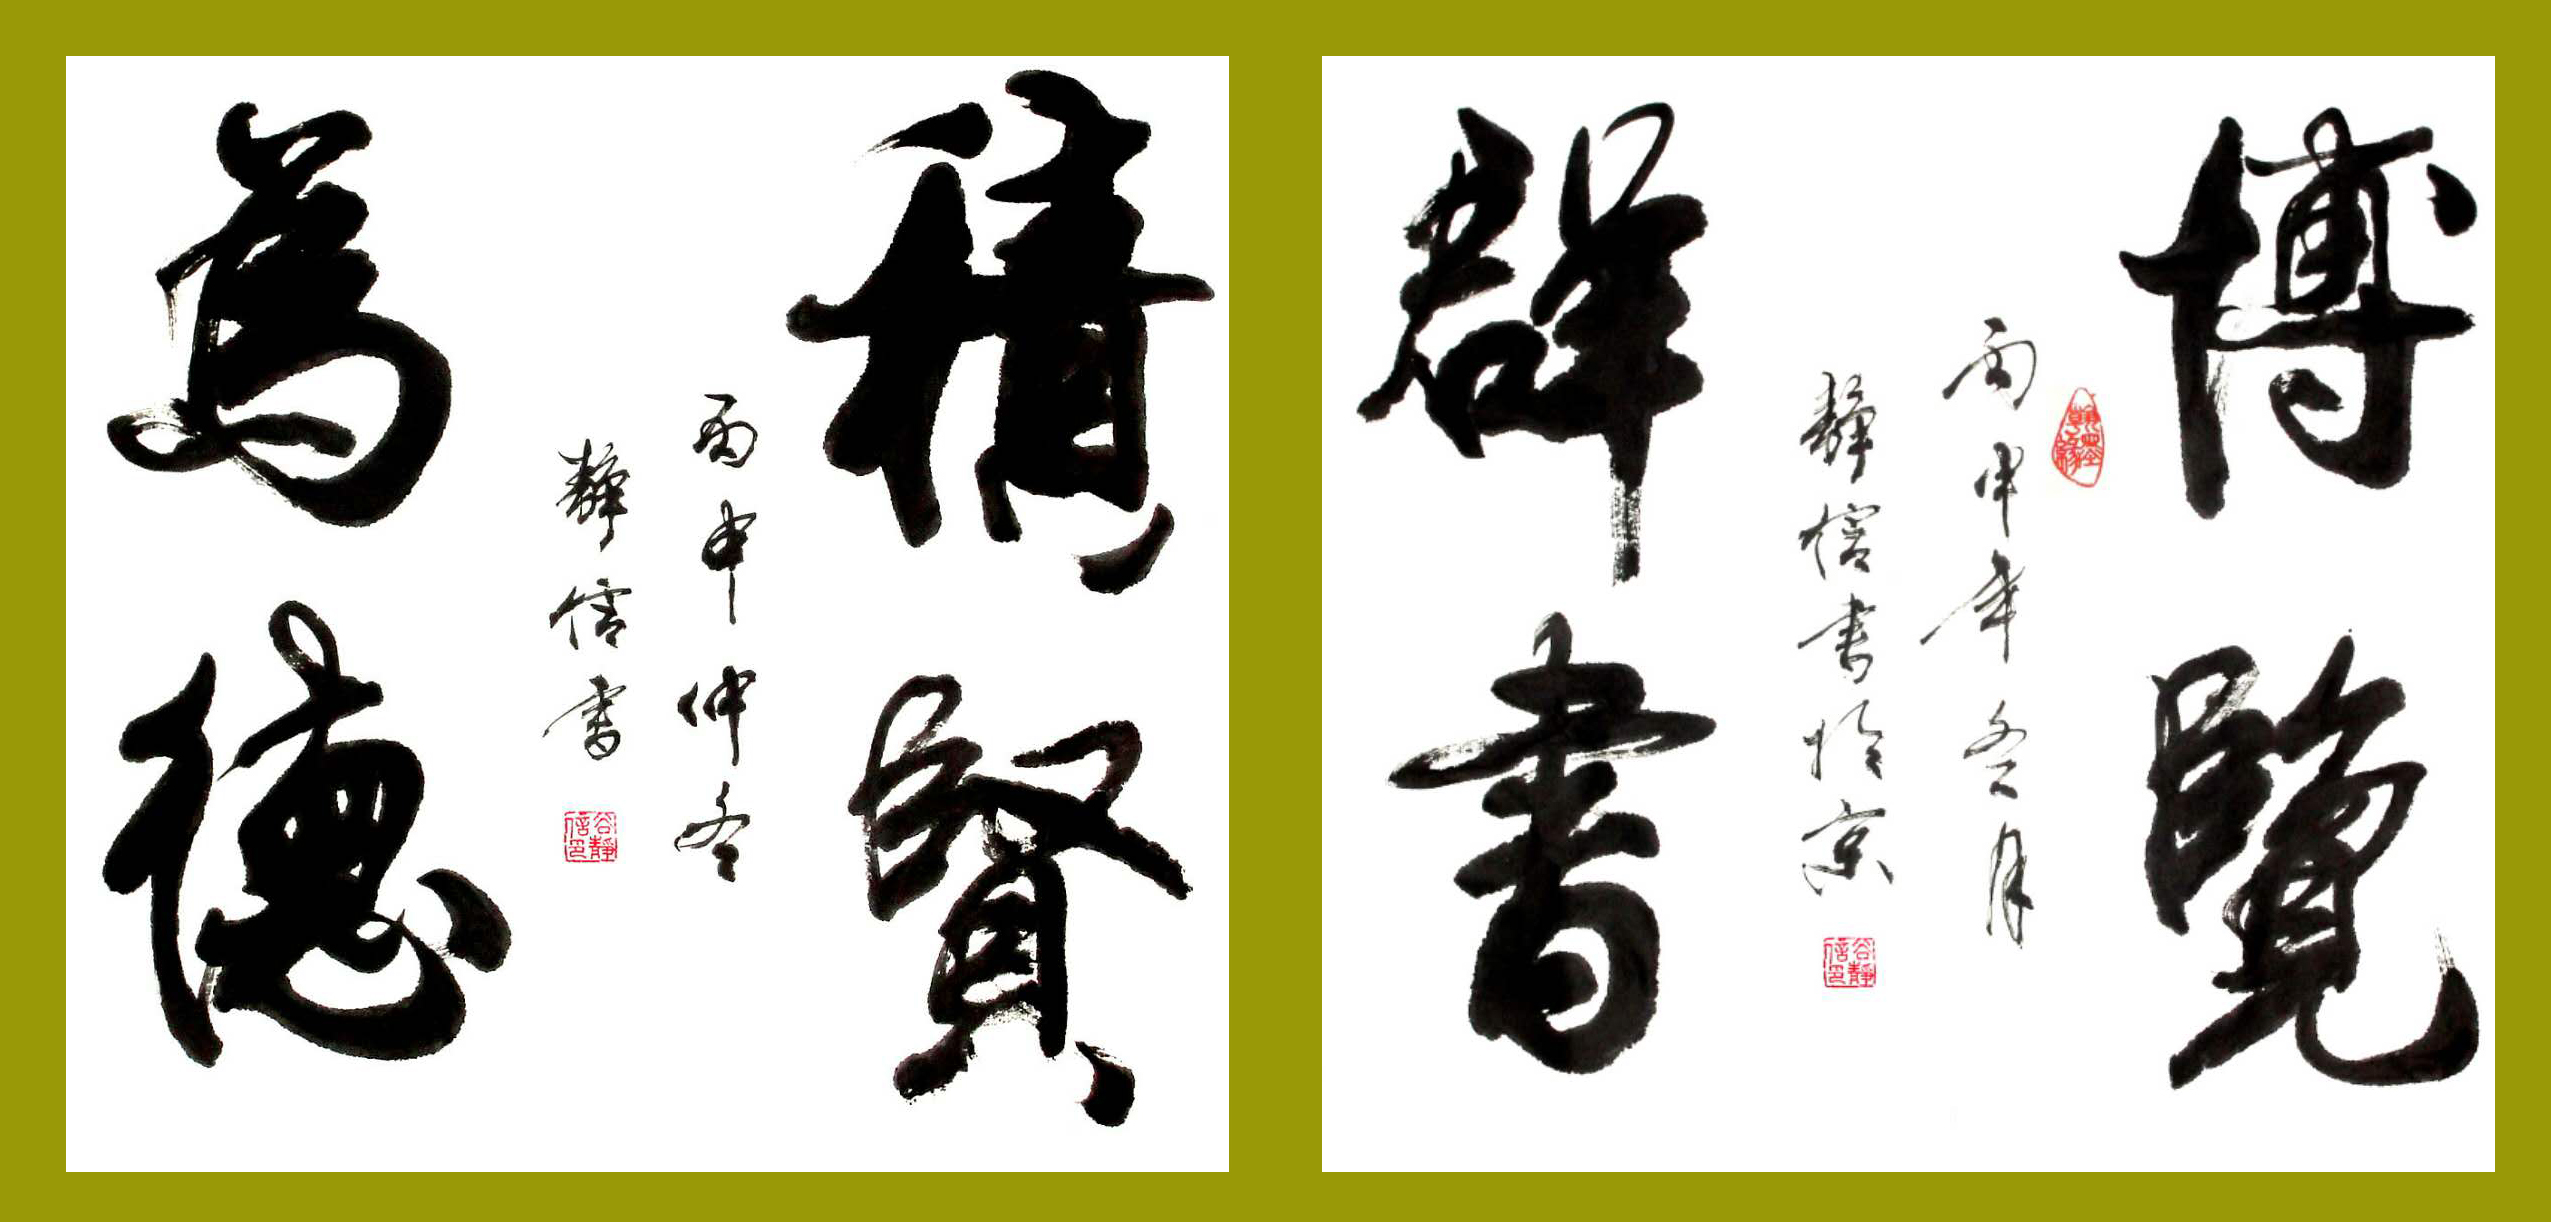 博覽
群書
丙申年冬月
靜信書於京
谷靜信印
積賢
為德
丙申仲冬
靜信書
谷靜信印